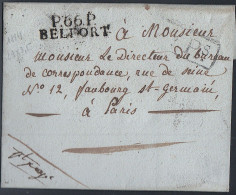 P.66.P.
BELFORT
à Monsieur
monsieur Le Directeur du bureau
de correspondance, rue de seine
N° 12, faubourg st-Germain,
à Paris